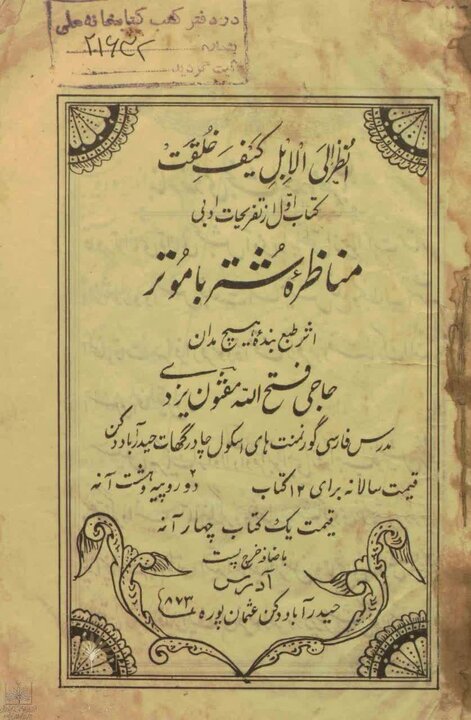 در دفتر کتب کتابخانه ملی
بشماره ۲۱۶۳۲
ثبت گردید
انظر الی الابل کیف خلقت
کتاب اول از تفریحات ادبی
مناظرهٔ شتر با موتر
اثر طبع بندهٔ هیچ مدان
حاجی فتح الله مفتون یزدی
مدرس فارسی گورنمنت های اسکول چادرگهات حیدرآباد دکن
قیمت سالانه برای ۱۲ کتاب ۲ دو روپیه و هشت آنه
قیمت یک کتاب چهار آنه
باضافه خرج پست
آدرس
حیدرآباد دکن عثمان پوره ۸۷۳